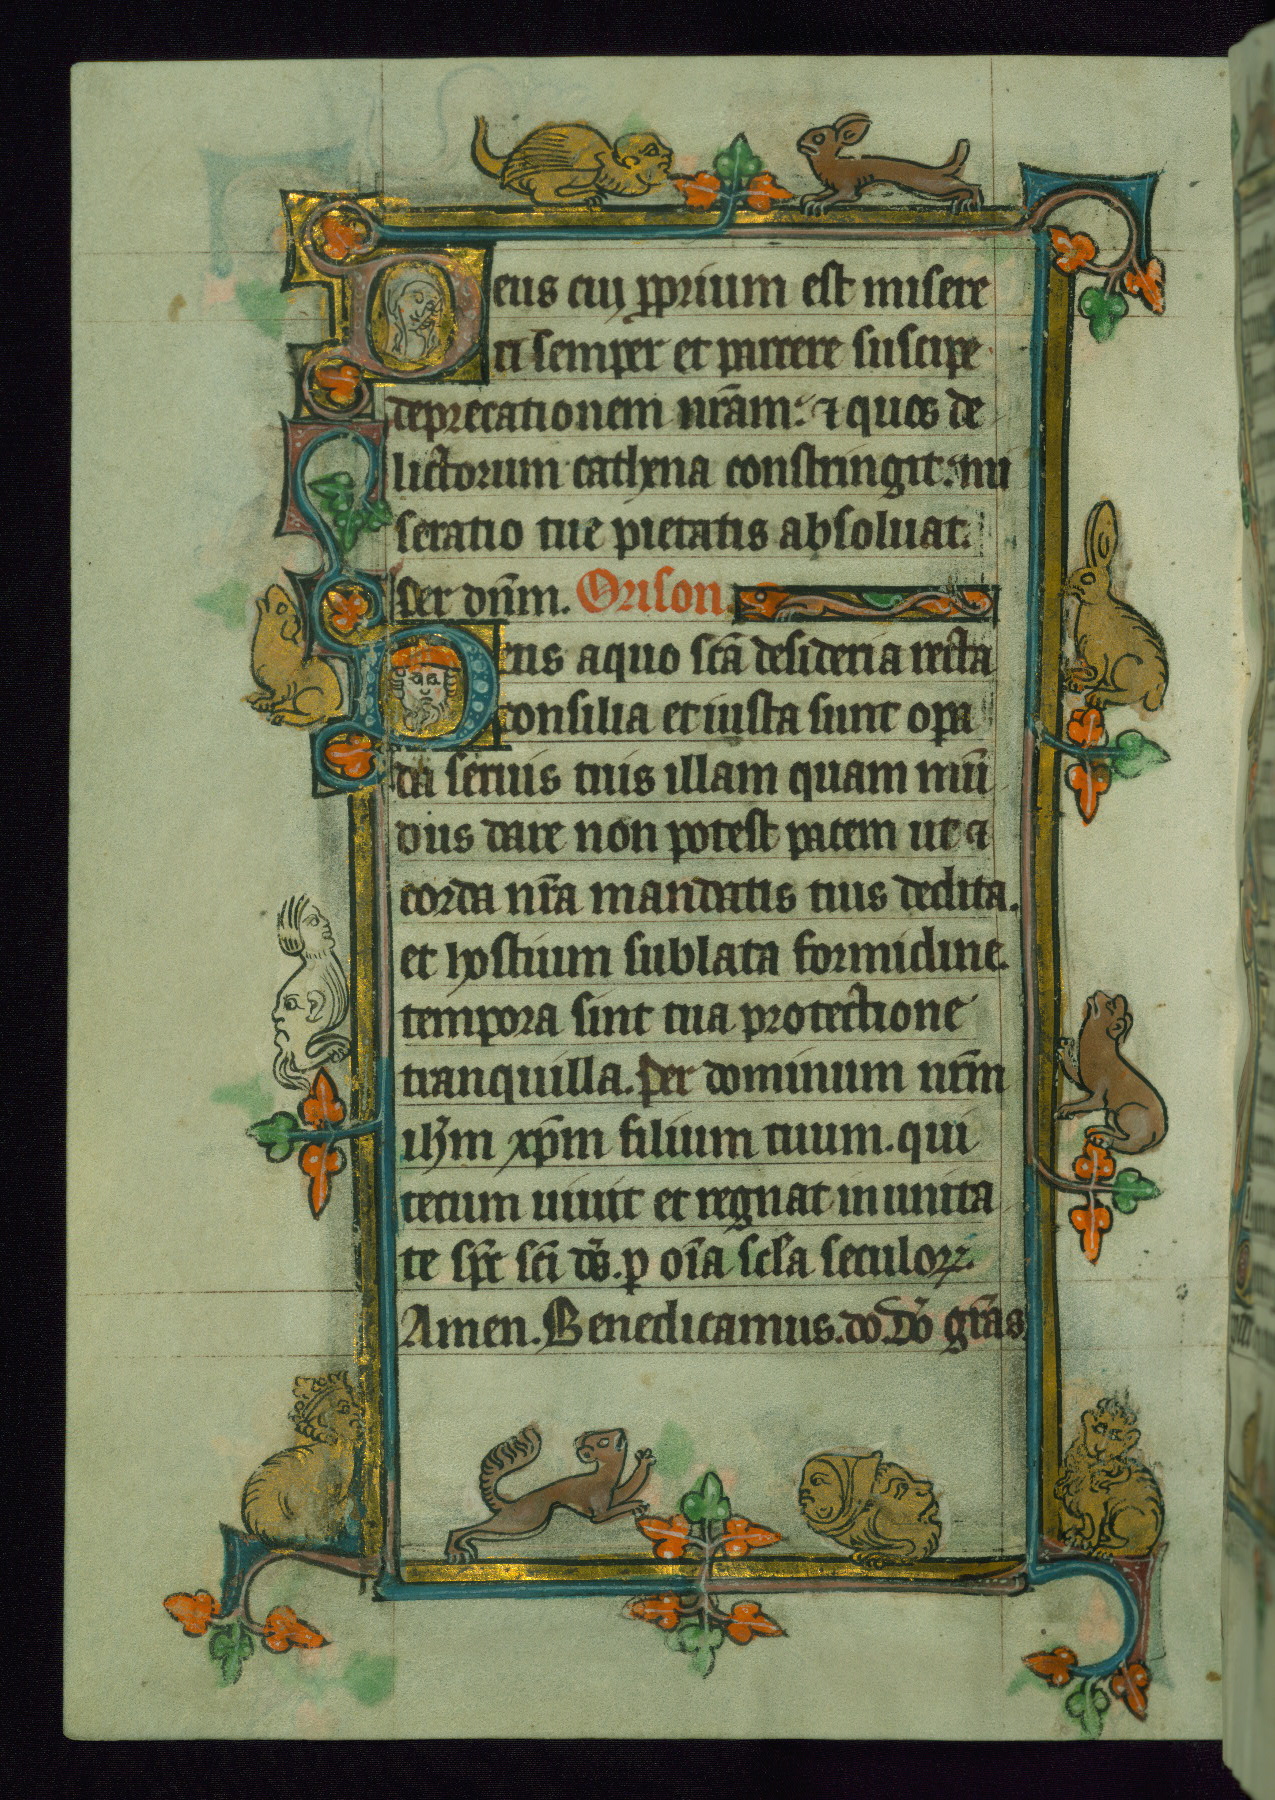 Deus cui' pprium est misere
ri semper et parcere suscipe
deprecationem nr̄am: ⁊ quos de
lictorum cathena constringit: mi
seratio tue pietatis absoluat.
Per dn̄m. Orison.
Deus a quo sc̄a desideria recta
consilia et iusta sunt opa
da seruis tuis illam quam mū
dus dare non potest pacem ut ⁊
corda nr̄a mandatis tuis dedita.
et hostium sublata formidine.
tempora sint tua protectione
tranquilla. Per dominum nr̄m
ih̄m xp̄m filium tuum. qui
tecum uiuit et regnat in unita
te sp̄c sc̄i ds̄. p om̄ia sc̄la seculoꝝ.
Amen. Benedicamus. do. Do̅ gr̄as